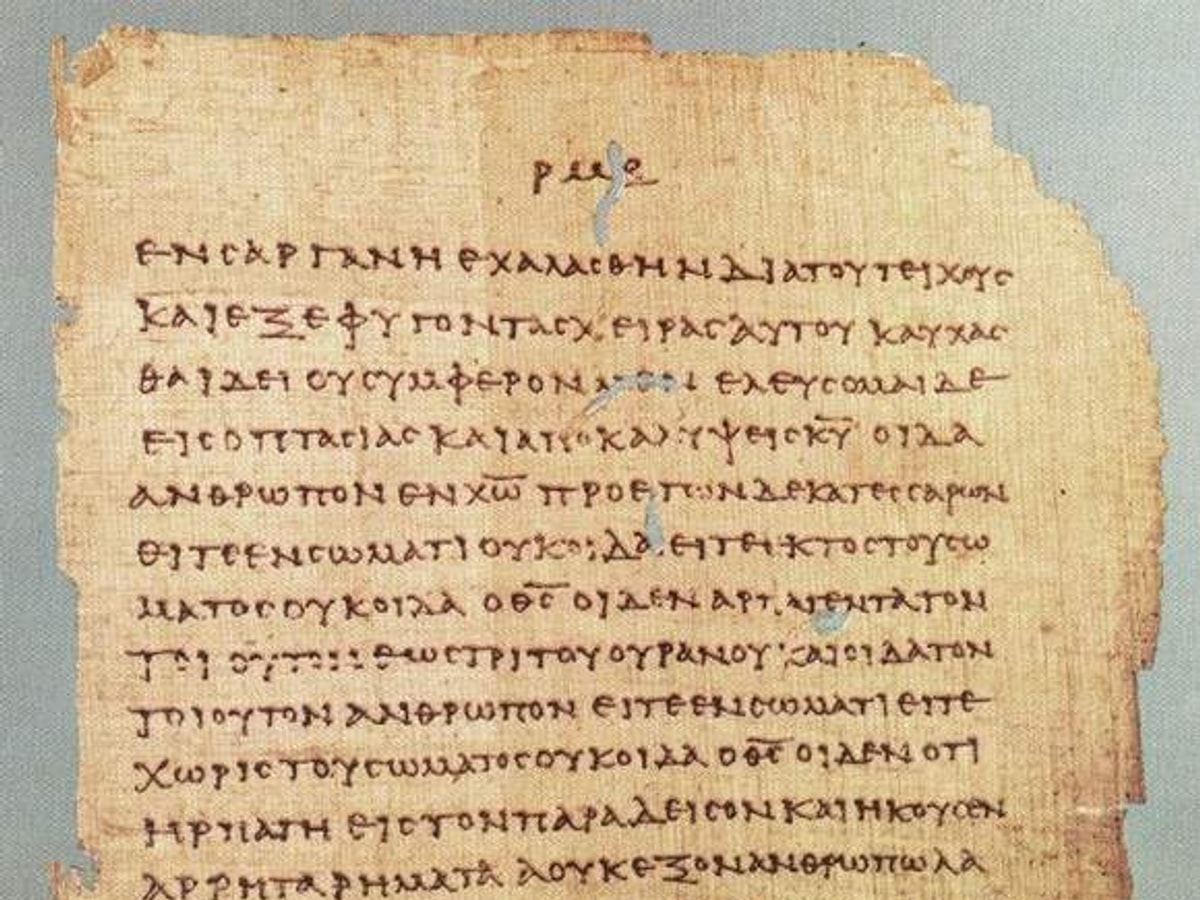 ρμε
ΕΝ ϹΑΡΓΑΝΗ ΕΧΑΛΑϹΘΗΝ ΔΙΑ ΤΟΥ ΤΕΙΧΟΥϹ
ΚΑΙ ΕΞΕΦΥΓΟΝ ΤΑϹ ΧΕΙΡΑϹ ΑΥΤΟΥ ΚΑΥΧΑϹ
ΘΑΙ ΔΕΙ ΟΥ ϹΥΜΦΕΡΟΝ ΜΕΝ ΕΛΕΥϹΟΜΑΙ ΔΕ
ΕΙϹ ΟΠΤΑϹΙΑϹ ΚΑΙ ΑΠΟΚΑΛΥΨΕΙϹ Κ̅Υ̅ ΟΙΔΑ
ΑΝΘΡΩΠΟΝ ΕΝ Χ̅Ω̅ ΠΡΟ ΕΤΩΝ ΔΕΚΑΤΕϹϹΑΡΩΝ
ΕΙΤΕ ΕΝ ϹΩΜΑΤΙ ΟΥΚ ΟΙΔΑ ΕΙΤΕ ΕΚΤΟϹ ΤΟΥ ϹΩ
ΜΑΤΟϹ ΟΥΚ ΟΙΔΑ Ο Θ̅Ϲ̅ ΟΙΔΕΝ ΑΡΠΑΓΕΝΤΑ ΤΟΝ
ΤΟΙΟΥΤΟΝ ΕΩϹ ΤΡΙΤΟΥ ΟΥΡΑΝΟΥ ΚΑΙ ΟΙΔΑ ΤΟΝ
ΤΟΙΟΥΤΟΝ ΑΝΘΡΩΠΟΝ ΕΙΤΕ ΕΝ ϹΩΜΑΤΙ ΕΙΤΕ
ΧΩΡΙϹ ΤΟΥ ϹΩΜΑΤΟϹ ΟΥΚ ΟΙΔΑ Ο Θ̅Ϲ̅ ΟΙΔΕΝ ΟΤΙ
ΗΡΠΑΓΗ ΕΙϹ ΤΟΝ ΠΑΡΑΔΕΙϹΟΝ ΚΑΙ ΗΚΟΥϹΕΝ
ΑΡΡΗΤΑ ΡΗΜΑΤΑ Α ΟΥΚ ΕΞΟΝ ΑΝΘΡΩΠΩ ΛΑ